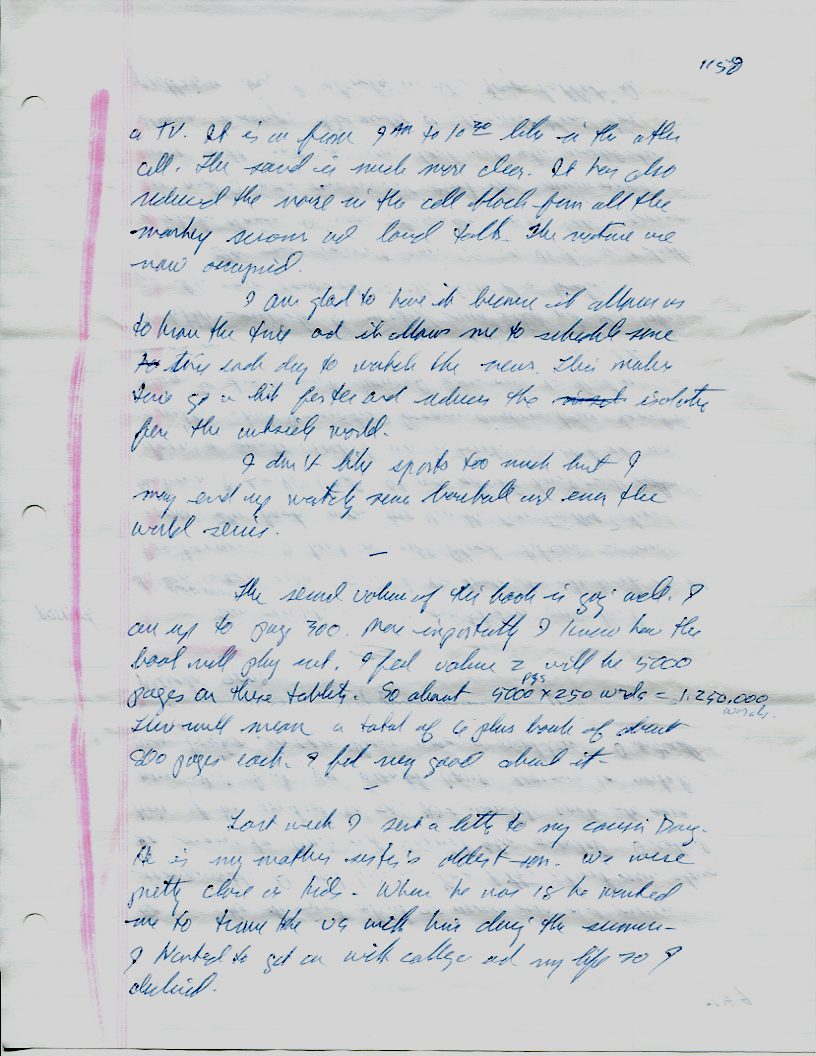 1158
a TV. It is on from 9 AM to 10 30 like in the other
cell. The sound is much more clear. It has also
reduced the noise in the cell block from all the
monkey scream ad loud talk. The are
now occupied.
I am glad to have it because it allows us
to know the time ad it allows me to schedule some
to time each day to watch the news. This makes
time go a bit faster and reduces the isolation
from the outside world.
I don't like sports too much but I
may end up watching some baseball ad even the
world series.
—
The second volume of the book is going well. I
am up to page 300. More importantly I know how the
book will play out. I feel volume 2 will be 5000
pages on these tablets. So about 5000 pgs x 250 words = 1,250,000
words.
This will mean a total of 6 plus book of about
800 pages each. I feel very good about it -
—
Last week I sent a letter to my cousin Doug.
He is my mother sister's oldest son. We were
pretty close as kids. When he was 18 he wanted
me to travel the US with him during the summer -
I wanted to get on with college ad my life so I
declined.